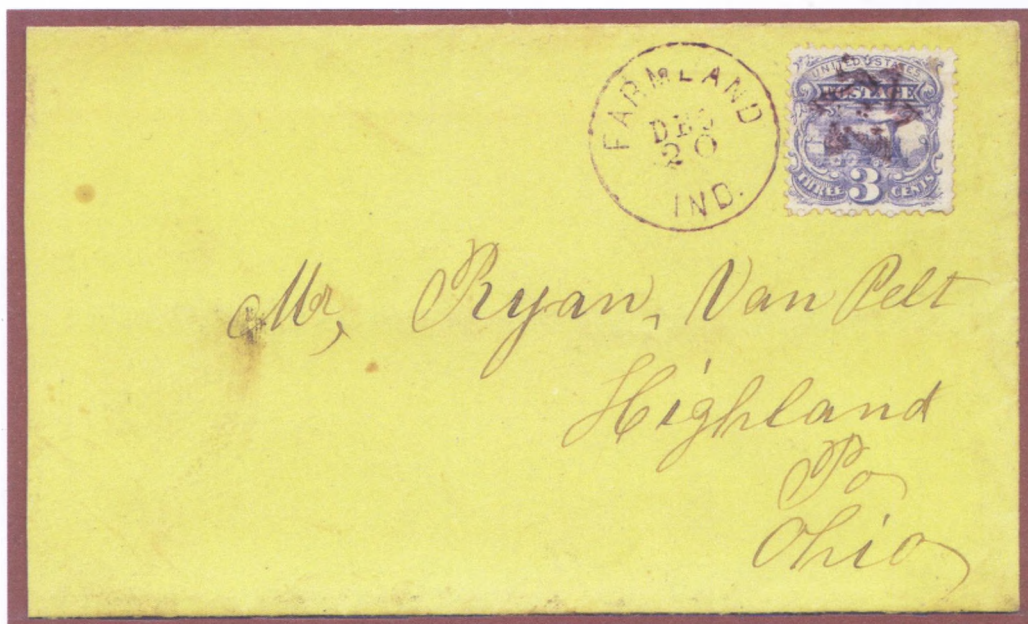 FARMLAND
DEC
20
IND.
UNITED STATES
POSTAGE
THREE 3 CENTS
Mr, Ryan, Van Pelt
Highland
Po
Ohio